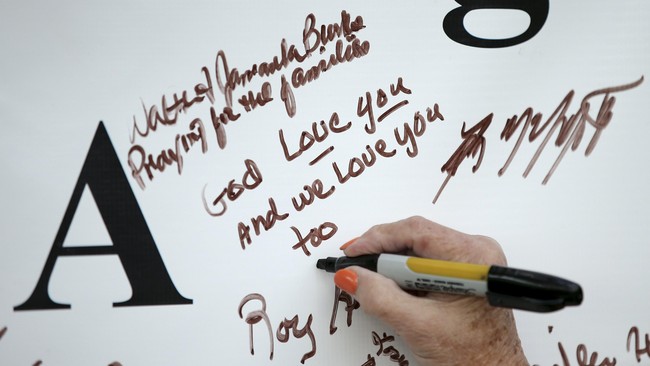 g
Walt & Samantha Burke
Praying for the families
God Love you
And we Love you
too
A
Roy